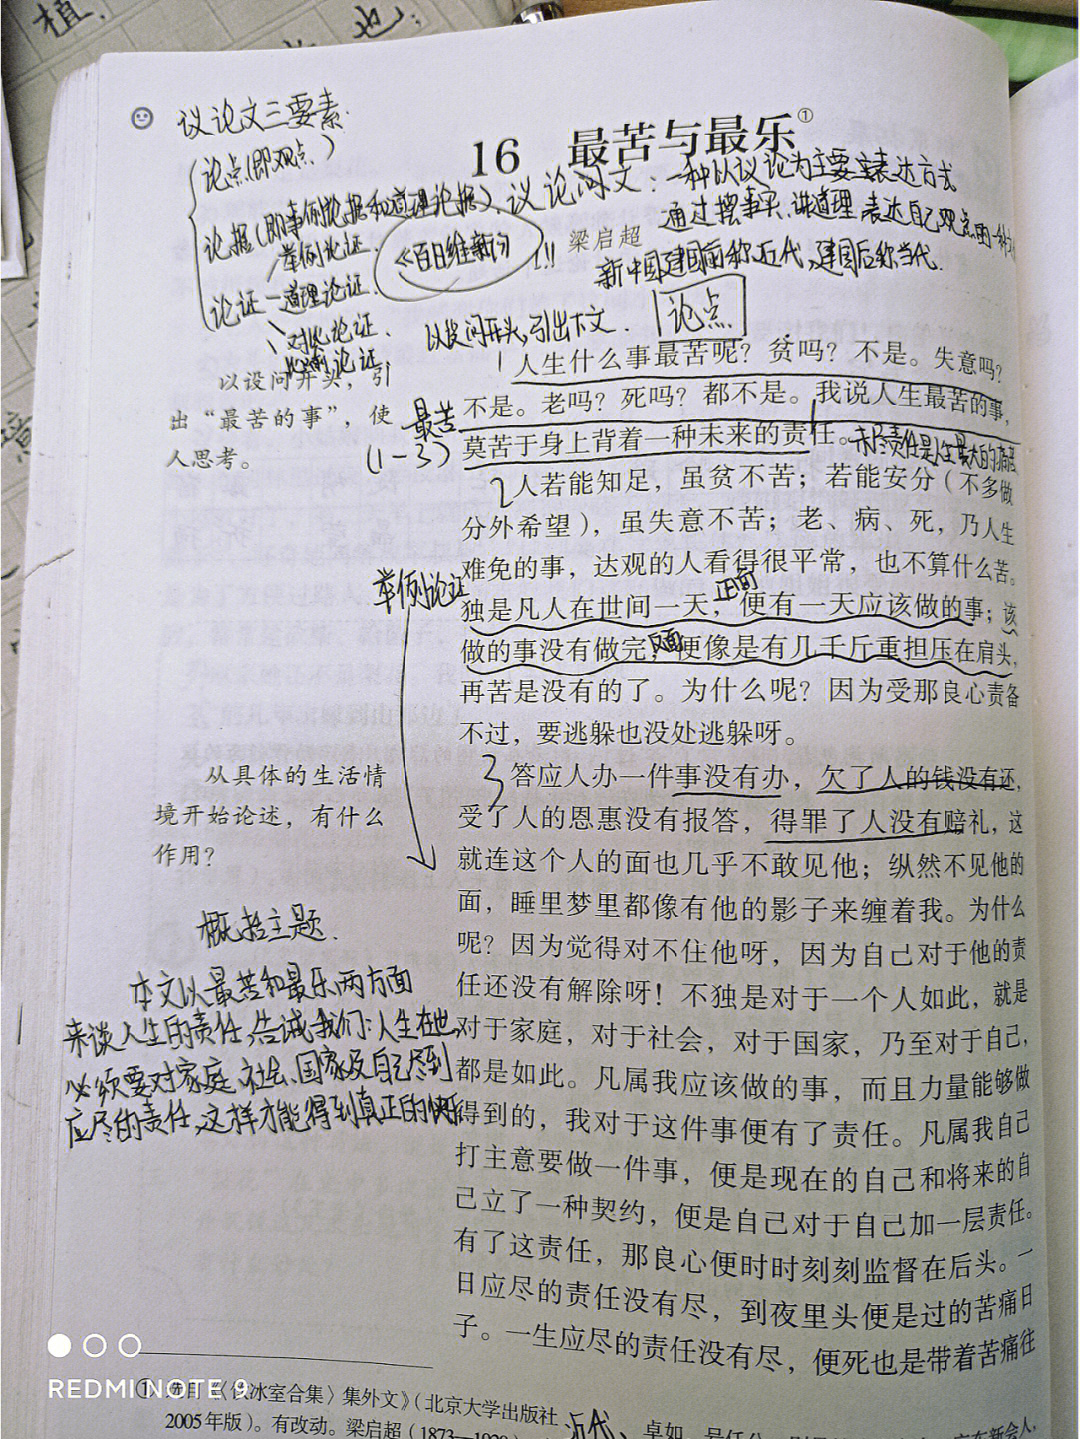 植
也
议论文三要素
16 最苦与最乐①
论点(即观点)
议论问文：一种以议论为主要表达方式
论据(即事例论据和道理论据)
通过摆事实、讲道理表达自己观点的一种
举例论证
《百日维新》!!!
梁启超
新中国建国前称近代，建国后称当代.
论证—道理论证.
对比论证.
比喻论证
以设问开头，引出下文.
论点
以设问开头，引
出“最苦的事”，使
人思考。
最苦
(1-3)
1人生什么事最苦呢？贫吗？不是。失意吗？
不是。老吗？死吗？都不是。我说人生最苦的事，
莫苦于身上背着一种未来的责任。未尽责任是人生最大的痛苦
2人若能知足，虽贫不苦；若能安分（不多做
分外希望），虽失意不苦；老、病、死，乃人生
难免的事，达观的人看得很平常，也不算什么苦。
举例论证
正面
独是凡人在世间一天，便有一天应该做的事；该
反面
做的事没有做完，便像是有几千斤重担压在肩头，
再苦是没有的了。为什么呢？因为受那良心责备
不过，要逃躲也没处逃躲呀。
从具体的生活情
境开始论述，有什么
作用？
3答应人办一件事没有办，欠了人的钱没有还，
受了人的恩惠没有报答，得罪了人没有赔礼，这
就连这个人的面也几乎不敢见他；纵然不见他的
面，睡里梦里都像有他的影子来缠着我。为什么
呢？因为觉得对不住他呀，因为自己对于他的责
任还没有解除呀！不独是对于一个人如此，就是
对于家庭，对于社会，对于国家，乃至对于自己，
都是如此。凡属我应该做的事，而且力量能够做
得到的，我对于这件事便有了责任。凡属我自己
打主意要做一件事，便是现在的自己和将来的自
己立了一种契约，便是自己对于自己加一层责任。
有了这责任，那良心便时时刻刻监督在后头。一
日应尽的责任没有尽，到夜里头便是过的苦痛日
子。一生应尽的责任没有尽，便死也是带着苦痛往
概括主题.
本文以最苦和最乐两方面
来谈人生的责任，告诫我们：人生在世，
必须要对家庭、社会、国家及自己尽到
应尽的责任，这样才能得到真正的快乐
REDMI NOTE 9
① 选自《〈饮冰室合集〉集外文》（北京大学出版社
2005年版）。有改动。梁启超（1873—1929）
近代
卓如